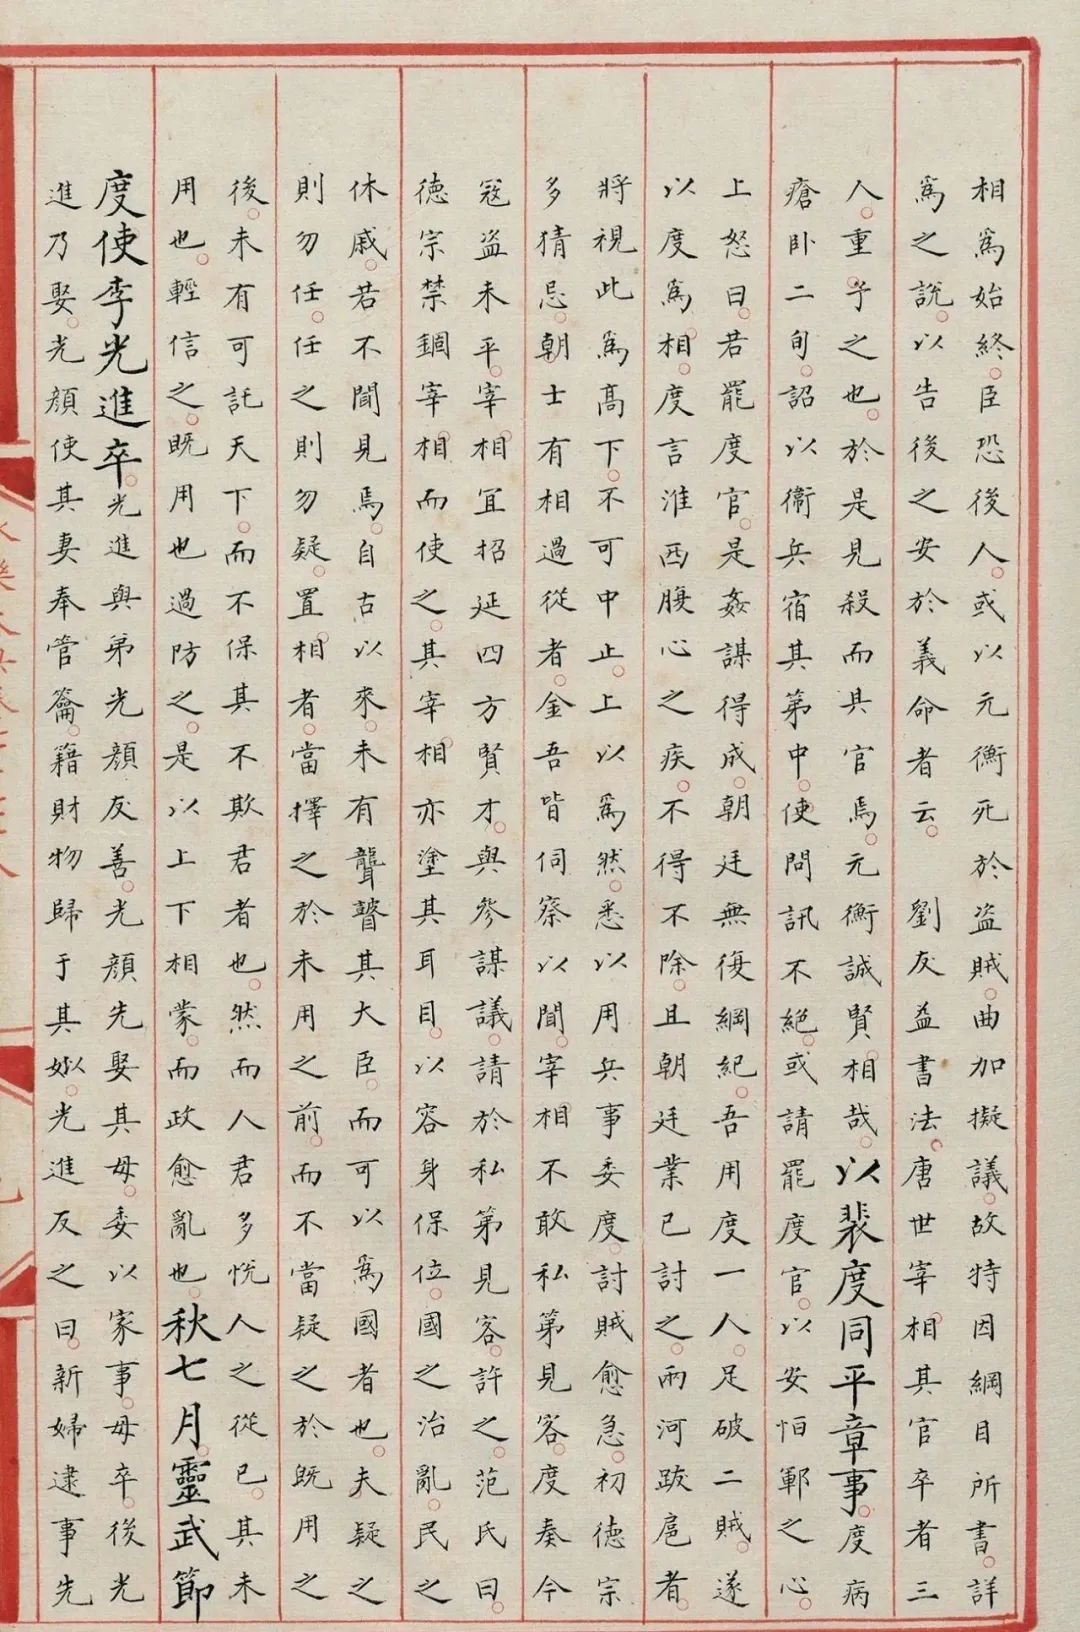 相爲始終。臣恐後人。或以元衡死於盜賊。曲加擬議。故特因綱目所書。詳
爲之說。以告後之安於義命者云。劉友益書法。唐世宰相其官卒者三
人。重予之也。於是見殺而具官焉。元衡誠賢相哉。以裴度同平章事。度病
瘡臥二旬。詔以衛兵宿其第中。使問訊不絕。或請罷度官。以安恒鄆之心。
上怒曰。若罷度官。是姦謀得成。朝廷無復綱紀。吾用度一人。足破二賊。遂
以度爲相。度言淮西腹心之疾。不得不除。且朝廷業已討之。兩河跋扈者。
將視此爲高下。不可中止。上以爲然。悉以用兵事委度。討賊愈急。初德宗
多猜忌。朝士有相過從者。金吾皆伺察以聞。宰相不敢私第見客。度奏今
寇盜未平。宰相宜招延四方賢才。與參謀議。請於私第見客。許之。范氏曰。
德宗禁錮宰相而使之。其宰相亦塗其耳目。以容身保位。國之治亂。民之
休戚。若不聞見焉。自古以來。未有聾瞽其大臣。而可以爲國者也。夫疑之
則勿任。任之則勿疑。置相者。當擇之於未用之前。而不當疑之於既用之
後。未有可託天下。而不保其不欺君者也。然而人君多悅人之從已。其未
用也。輕信之。既用也過防之。是以上下相蒙。而政愈亂也。秋七月。靈武節
度使李光進卒。光進與弟光顏友善。光顏先娶其母。委以家事。母卒。後光
進乃娶。光顏使其妻奉管籥。籍財物歸于其姒。光進反之曰。新婦逮事先